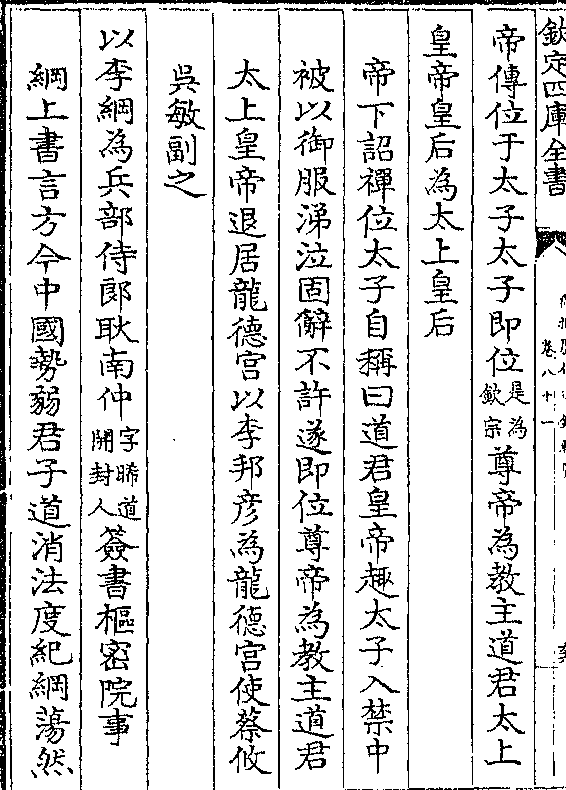 欽定四庫全書
卷八十一
帝傳位于太子太子即位是為欽宗尊帝為教主道君太上
皇帝皇后為太上皇后
帝下詔禪位太子自稱曰道君皇帝趣太子入禁中
被以御服涕泣固辭不許遂即位尊帝為教主道君
太上皇帝退居龍德宮以李邦彦為龍德宮使蔡攸
吳敏副之
以李綱為兵部侍郎耿南仲字晞道開封人簽書樞密院事
綱上書言方今中國勢弱君子道消法度紀綱蕩然